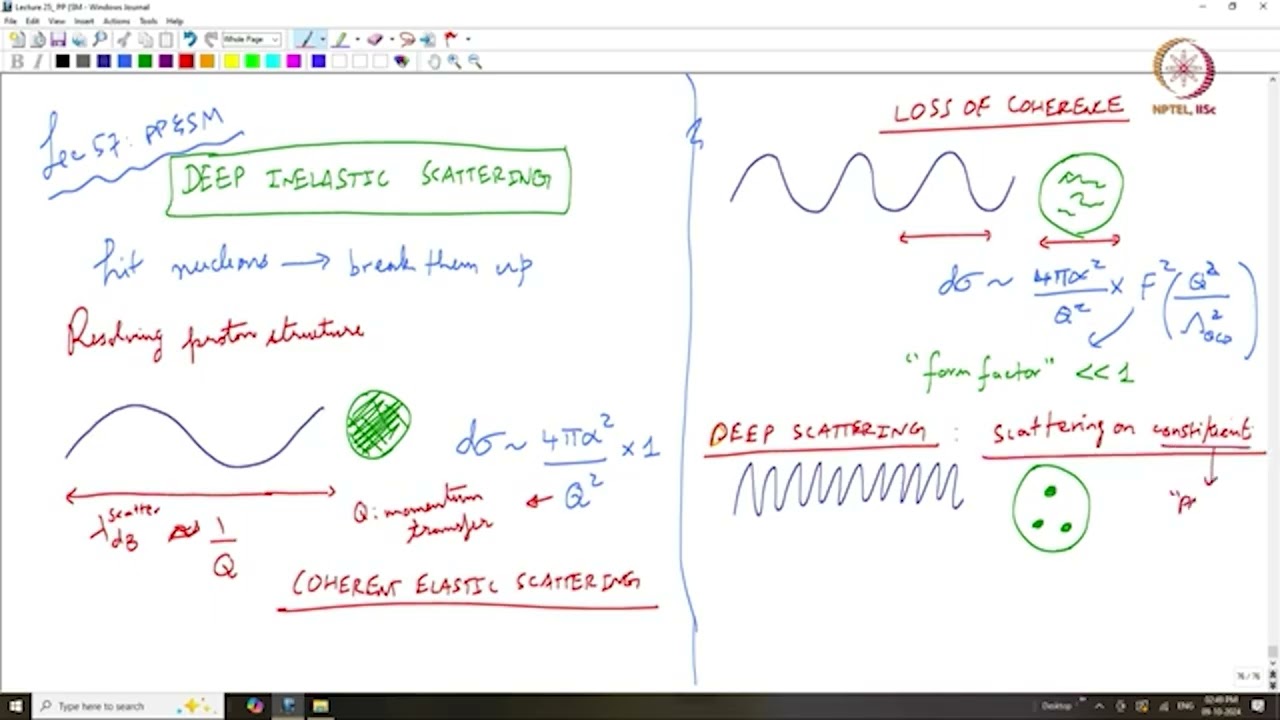 Lecture 25_ PP (SM - Windows Journal
File Edit View Insert Actions Tools Help
Whole Page
B I
NPTEL, IISc
Lec 57: PP&SM
DEEP INELASTIC SCATTERING
hit nucleons → break them up
Resolving proton structure
dσ ~ 4πα² / Q² × 1
λ_dB^scatter ≈ 1/Q
Q: momentum transfer
COHERENT ELASTIC SCATTERING
LOSS OF COHERENCE
dσ ~ 4πα² / Q² × F² (Q² / Λ²_QCD)
"form factor" << 1
DEEP SCATTERING : scattering on constituent
"A
76 / 76
Type here to search
Desktop
ENG
02:49 PM
09-10-2024